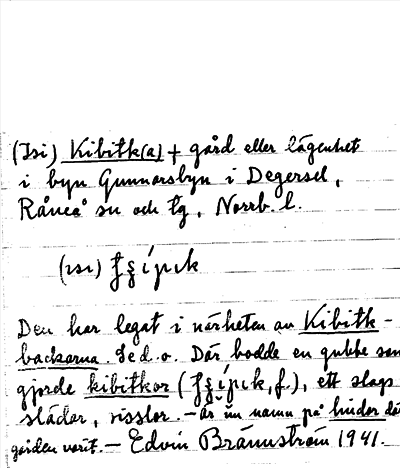 (Isi) Kibitk(a) + gård eller lägenhet
i byn Gunnarsbyn i Degersel,
Råneå sn och tg, Norrb. l.
(ısı)
Den har legat i närheten av Kibitk-
backarna. Se d. o. Där bodde en gubbe som
gjorde kibitkor ( f.), ett slags
slädar, risslor. – är nu namn på där
gården varit. – Edvin Brännström 1941.